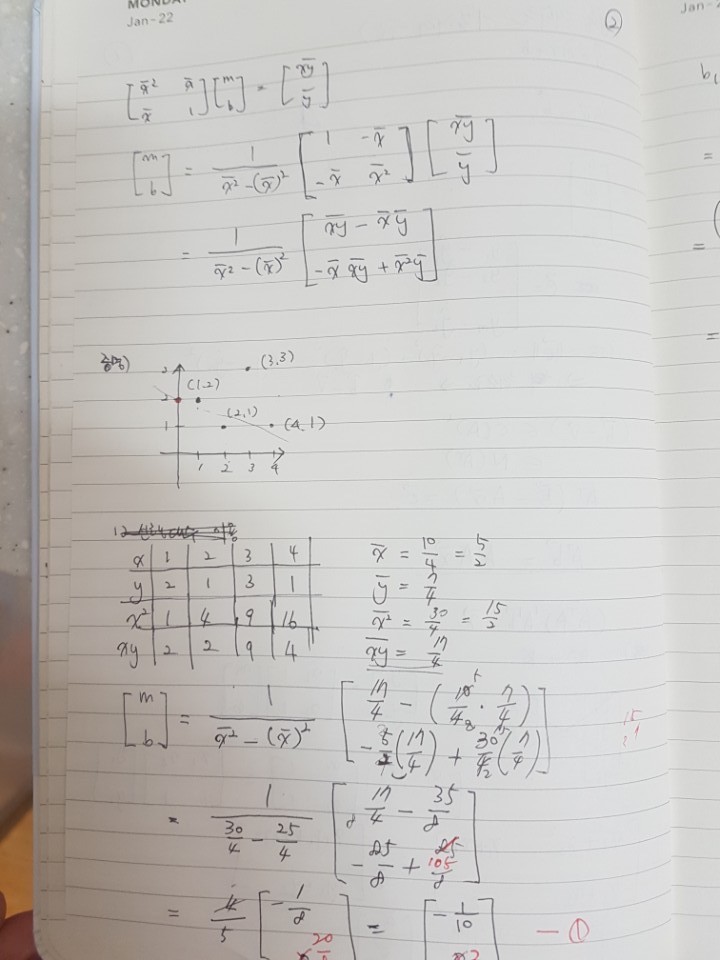 MONDAY
Jan-22
②
Jan-
[x̄² x̄; x̄ 1][m; b] = [x̄ȳ; ȳ]
[m; b] = 1/(x̄² - (x̄)²) [1 -x̄; -x̄ x̄²] [x̄ȳ; ȳ]
= 1/(x̄² - (x̄)²) [x̄ȳ - x̄ ȳ; -x̄ x̄ȳ + x̄²ȳ]
(3,3)
2 (1,2)
1 (2,1) (4,1)
1 2 3 4
x 1 2 3 4
y 2 1 3 1
x² 1 4 9 16
xy 2 2 9 4
x̄ = 10/4 = 5/2
ȳ = 7/4
x̄² = 30/4 = 15/2
x̄ȳ = 17/4
[m; b] = 1/(x̄² - (x̄)²) [17/4 - (10/4 · 7/4); -5/2(17/4) + 30/4(7/4)]
= 1/(30/4 - 25/4) [17/4 - 35/8; -85/8 + 105/8]
= 4/5 [-1/8; 20/8] = [-1/10; 2] - ①